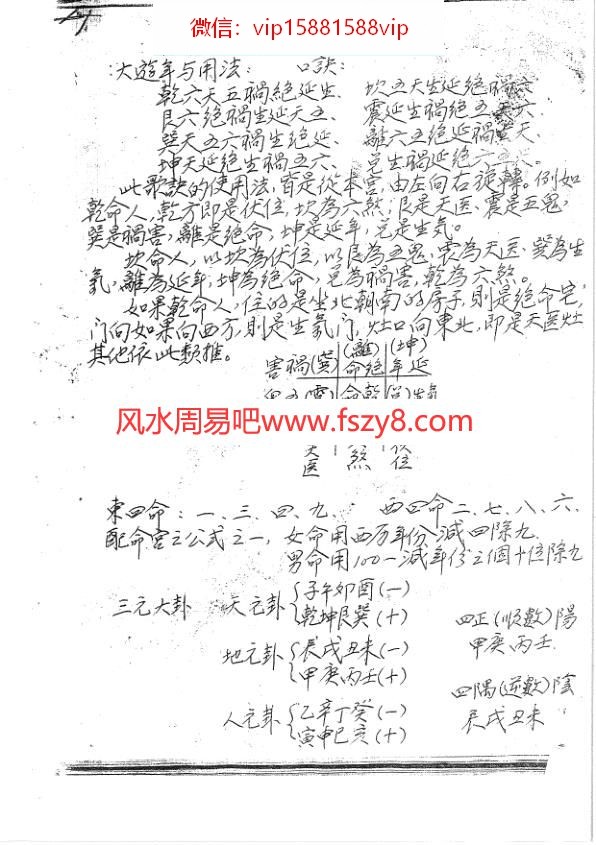 微信：vip15881588vip
大遊年与用法： 口訣：
乾六天五禍絕延生、 坎五天生延絕禍六
艮六絕禍生延天五、 震延生禍絕五天六、
巽天五六禍生絕延、 離六五絕延禍生天、
坤天延絕生禍五六、 兌生禍延絕六五天。
此歌訣的使用法，皆是從本宮，由左向右旋轉。例如
乾命人，乾方即是伏位，坎為六煞；艮是天医、震是五鬼，
巽是禍害，離是絕命，坤是延年，兌是生氣。
坎命人，以坎為伏位，以艮為五鬼，震為天医、巽為生
氣，離為延年，坤為絕命，兌為禍害，乾為六煞。
如果乾命人，住的是坐北朝南的房子，則是絕命宅，
門向如果向西方，則是生氣門，灶口向東北，即是天医灶
其他依此類推。
害禍(巽) (離)命絕 (坤)年延
(震) 命乾 (兌)生氣
风水周易吧www.fszy8.com
天医 煞 伏位
東四命：一、三、四、九、 西四命二、七、八、六、
配命宮之公式之一，女命用西万年份减四除九
男命用100一减年份之個十位除九
三元大卦 天元卦 子午卯酉(一)
乾坤艮巽(十) 四正(順數)陽
甲庚丙壬
地元卦 辰戌丑未(一)
甲庚丙壬(十)
四隅(逆數)陰
辰戌丑未
人元卦 乙辛丁癸(一)
寅申巳亥(十)